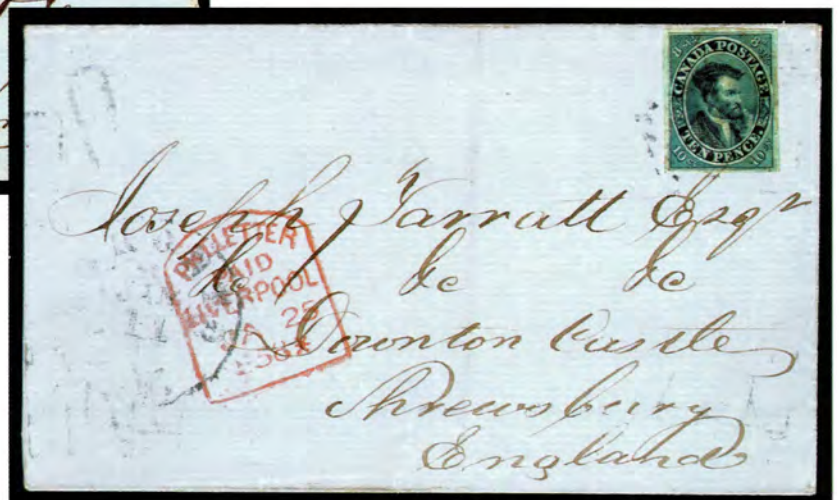 CANADA POSTAGE
TEN PENCE.
Joseph Jarratt Esqr
&c &c &c
Downton Castle
Shrewsbury
England
PKT LETTER
PAID
LIVERPOOL
JA 25